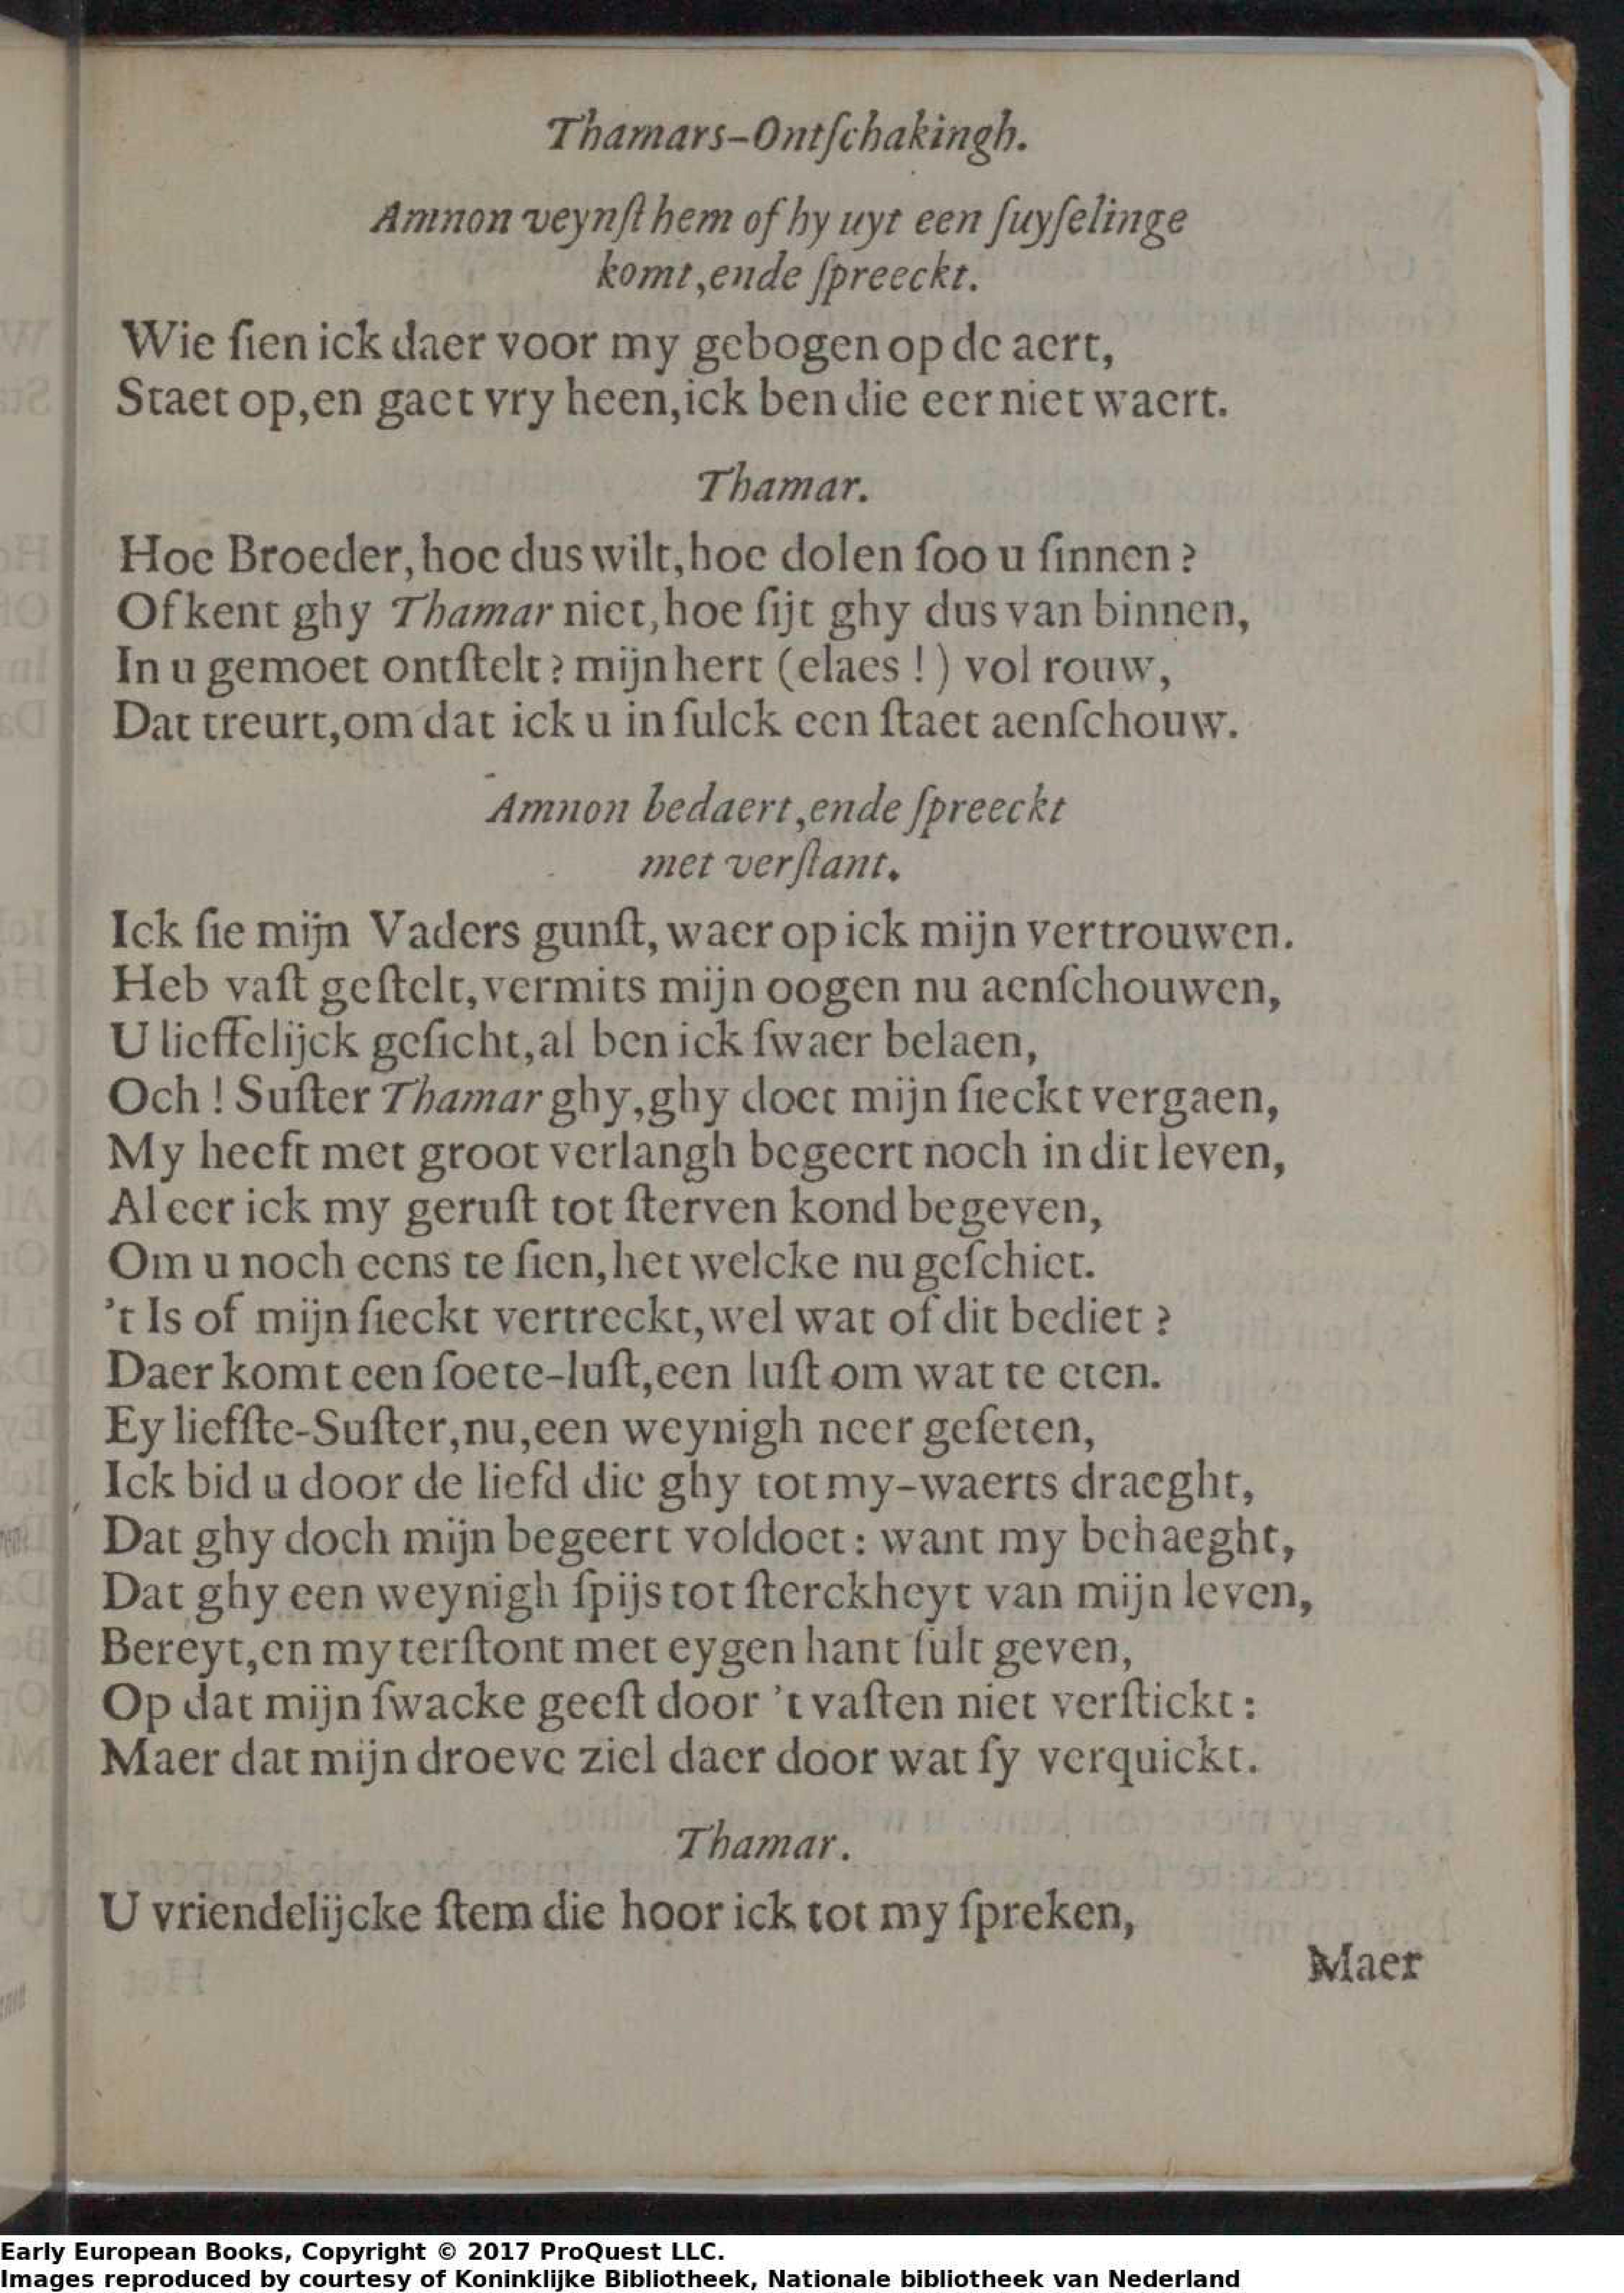 Thamars-Ontſchakingh.
Amnon veynſt hem of hy uyt een ſuyſelinge
komt, ende ſpreeckt.
Wie ſien ick daer voor my gebogen op de aert,
Staet op, en gaet vry heen, ick ben die eer niet waert.
Thamar.
Hoe Broeder, hoe dus wilt, hoe dolen ſoo u ſinnen?
Of kent ghy Thamar niet, hoe ſijt ghy dus van binnen,
In u gemoet ontſtelt? mijn hert (elaes!) vol rouw,
Dat treurt, om dat ick u in ſulck een ſtaet aenſchouw.
Amnon bedaert, ende ſpreeckt
met verſtant.
Ick ſie mijn Vaders gunſt, waer op ick mijn vertrouwen.
Heb vaſt geſtelt, vermits mijn oogen nu aenſchouwen,
U lieffelijck geſicht, al ben ick ſwaer belaen,
Och! Suſter Thamar ghy, ghy doet mijn ſieckt vergaen,
My heeft met groot verlangh begeert noch in dit leven,
Al eer ick my geruſt tot ſterven kond begeven,
Om u noch eens te ſien, het welcke nu geſchiet.
't Is of mijn ſieckt vertreckt, wel wat of dit bediet?
Daer komt een ſoete-luſt, een luſt om wat te eten.
Ey liefſte-Suſter, nu, een weynigh neer geſeten,
Ick bid u door de liefd die ghy tot my-waerts draeght,
Dat ghy doch mijn begeert voldoet: want my behaeght,
Dat ghy een weynigh ſpijs tot ſterckheyt van mijn leven,
Bereyt, en my terſtont met eygen hant ſult geven,
Op dat mijn ſwacke geeſt door 't vaſten niet verſtickt:
Maer dat mijn droeve ziel daer door wat ſy verquickt.
Thamar.
U vriendelijcke ſtem die hoor ick tot my ſpreken,
Maer
Early European Books, Copyright © 2017 ProQuest LLC.
Images reproduced by courtesy of Koninklijke Bibliotheek, Nationale bibliotheek van Nederland